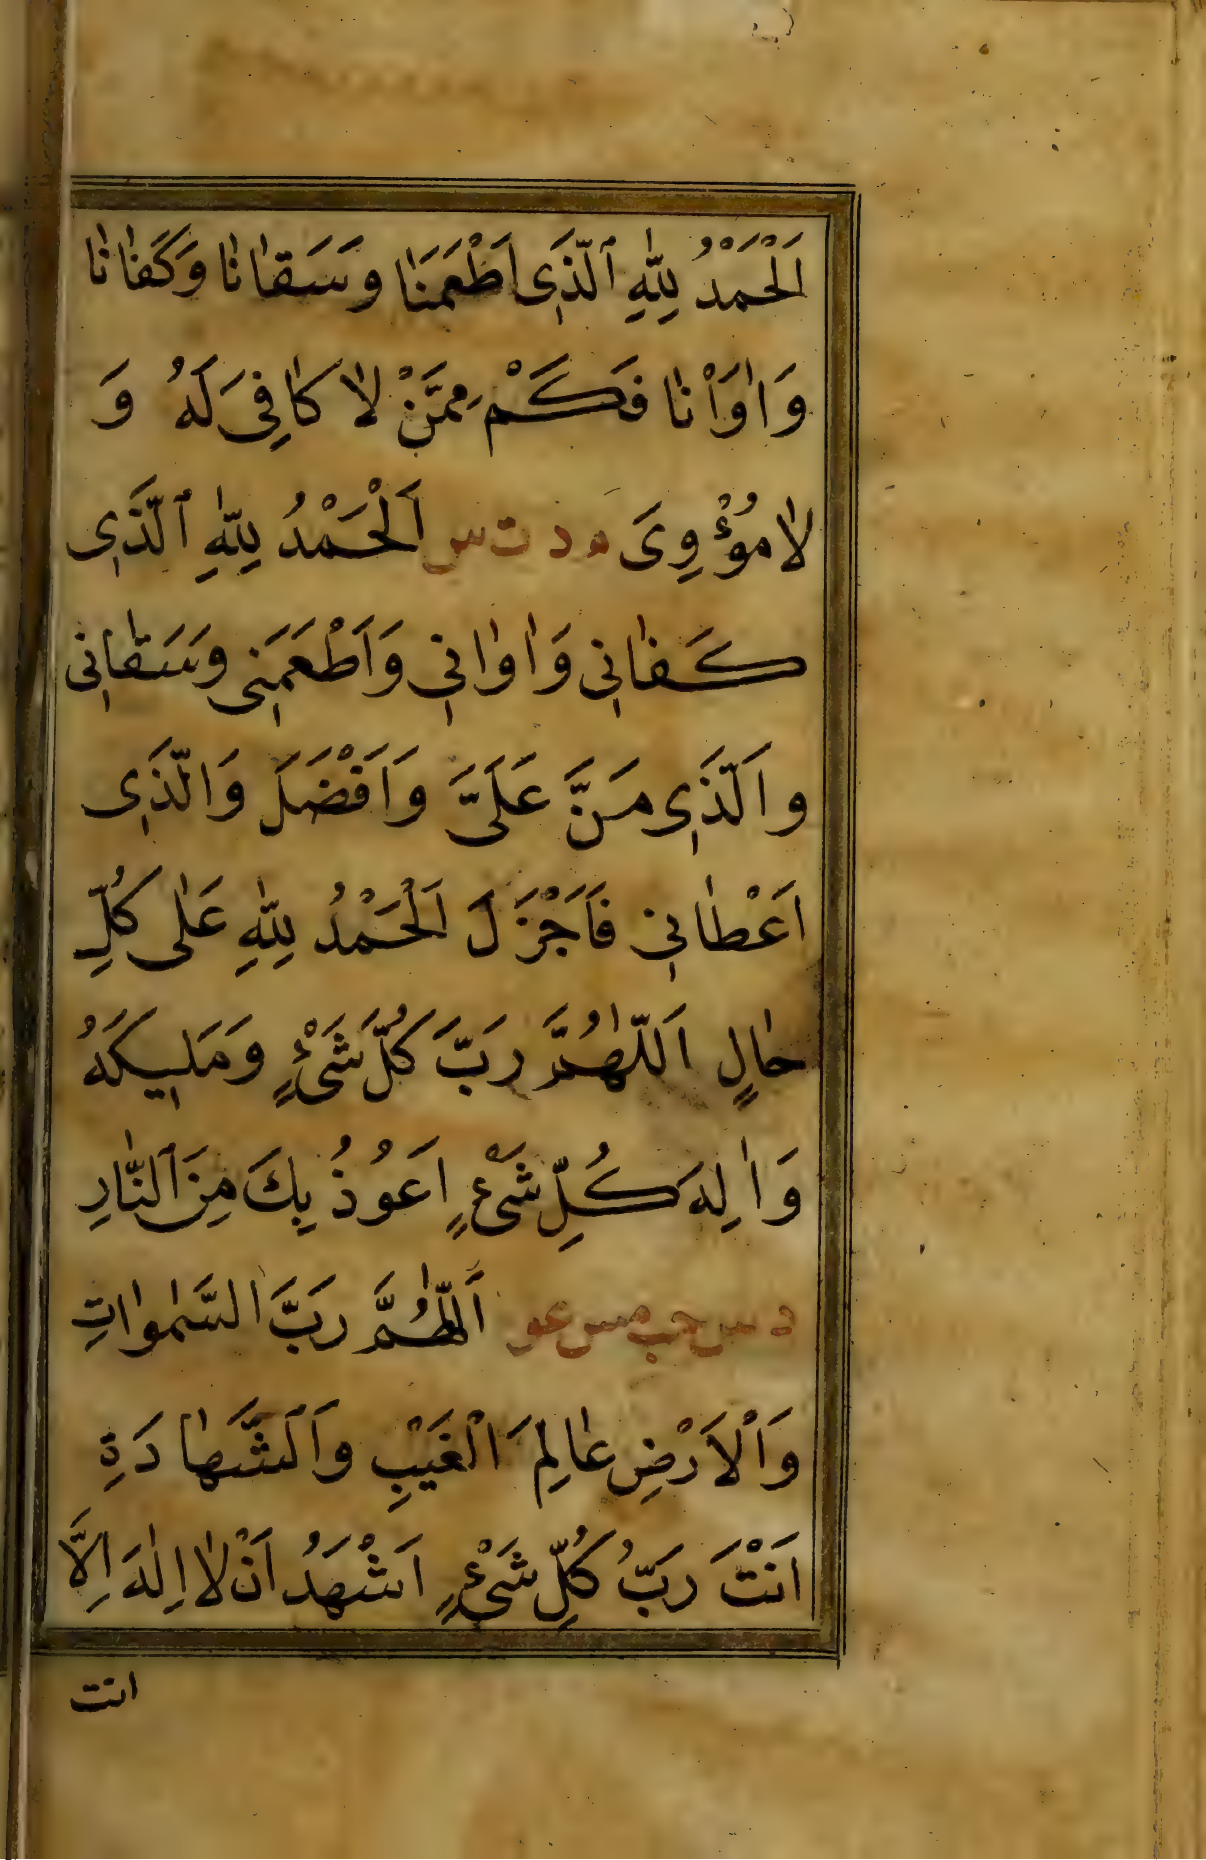 اَلْحَمْدُ لِلّٰهِ ٱلَّذَٖى اَطْعَمَنٰا وَسَقٰانٰا وَكَفٰانٰا
وَاٰوَاْنٰا فَكَمْ مِمَّنْ لاٰ كٰافِىَ لَهُ وَ
لاٰ مُؤْوِىَ م د ت س اَلْحَمْدُ لِلّٰهِ ٱلَّذَٖى
كَفٰانٖى وَاٰوٰانٖى وَاَطْعَمَنٖى وَسَقٰانٖى
وَالَّذَٖى مَنَّ عَلَىَّ وَاَفْضَلَ وَالَّذَٖى
اَعْطٰانٖى فَاَجْزَلَ اَلْحَمْدُ لِلّٰهِ عَلٰى كُلِّ
حٰالٍ اَللّٰهُمَّ رَبَّ كُلِّ شَىْءٍ وَمَلٖيكَهُ
وَاٰلِهَ كُلِّ شَىْءٍ اَعُوذُ بِكَ مِنَ ٱلنّٰارِ
د س حب مس عو اَللّٰهُمَّ رَبَّ السَّمٰوٰاتِ
وَاْلاَرْضِ عٰالِمَ الْغَيْبِ وَٱلشَّهٰادَةِ
اَنْتَ رَبُّ كُلِّ شَىْءٍ اَشْهَدُ اَنْ لاٰ اِلٰهَ اِلَّا
انت